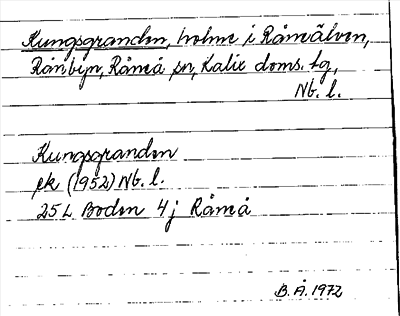 Kungsgranden, holme i Råneälven,
Rånbyn, Råneå sn, Kalix doms. tg,
Nb. l.
Kungsgranden
ek (1952) Nb. l.
25 L Boden 4 j Råneå
B. Å. 1972